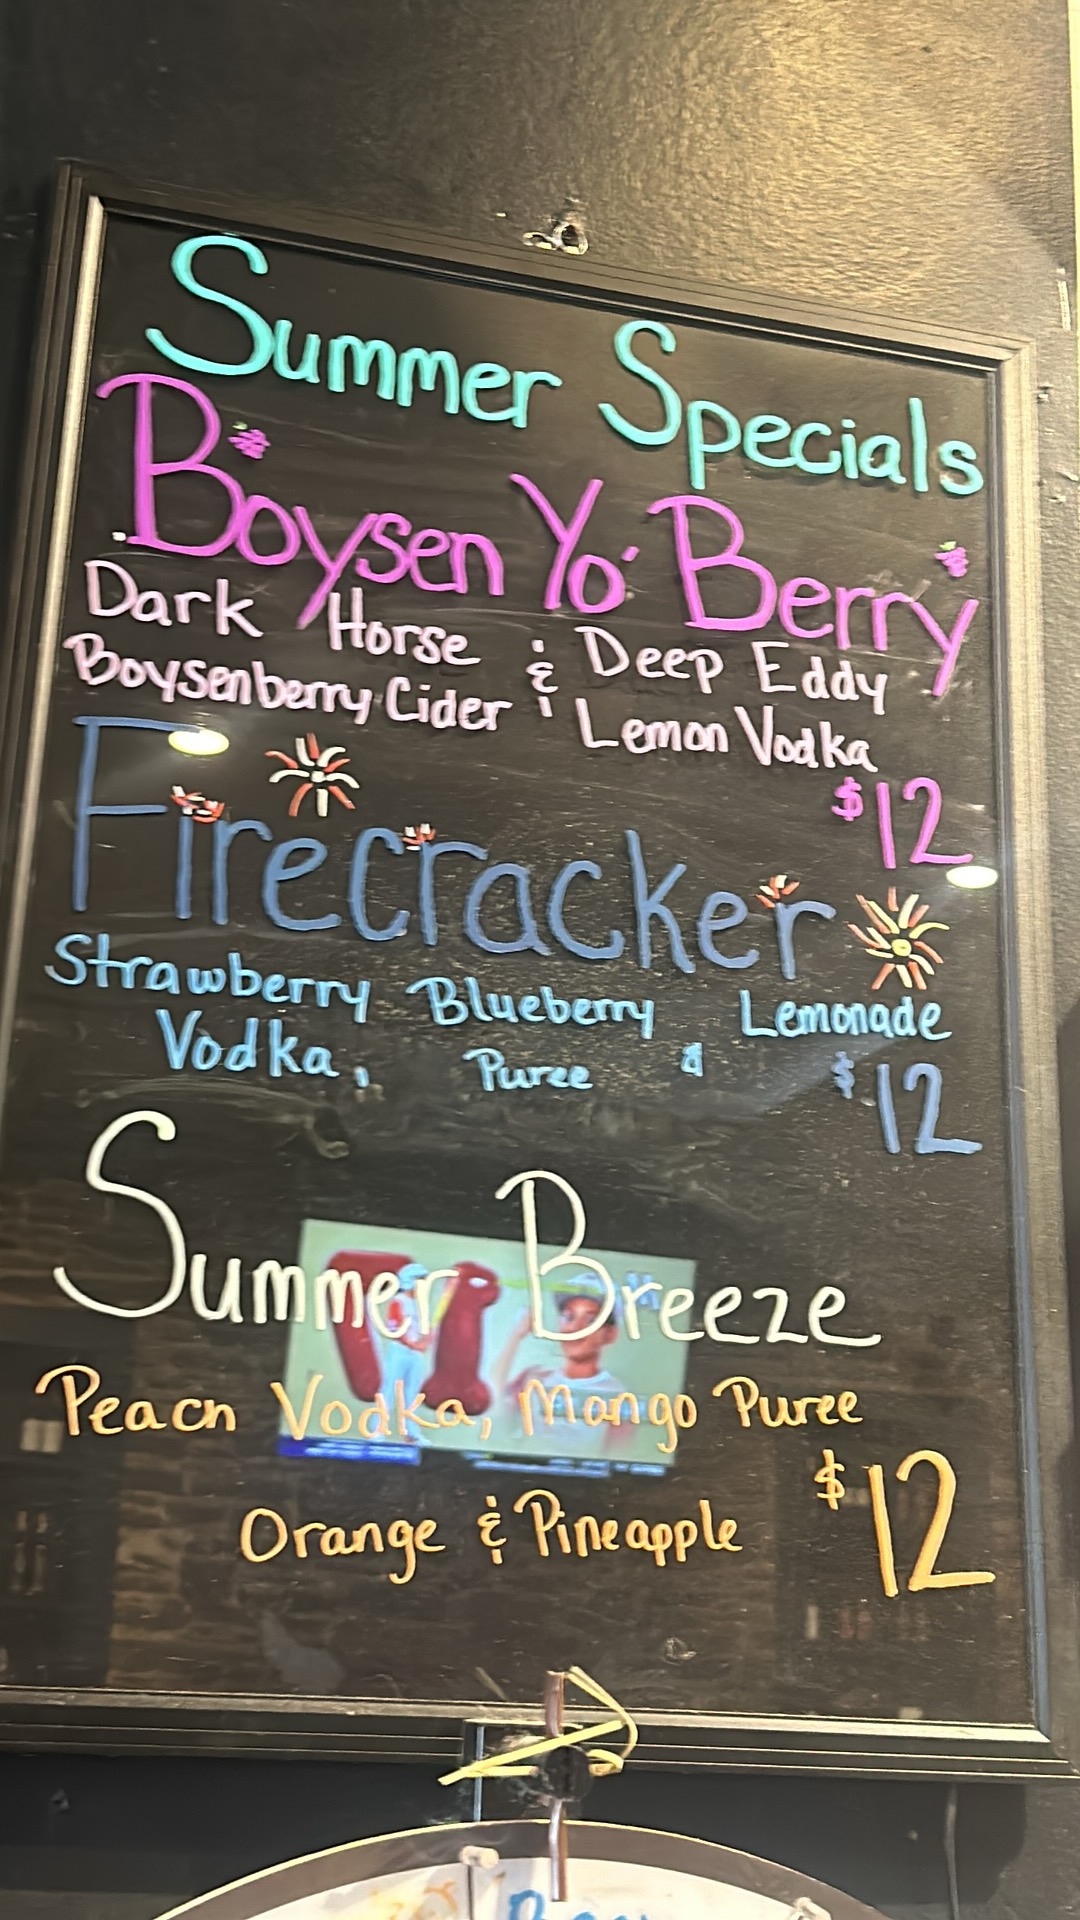 Summer Specials
Boysen Yo' Berry
Dark Horse & Deep Eddy
Boysenberry Cider Lemon Vodka
$12
Firecracker
Strawberry Blueberry Lemonade
Vodka, Puree &
$12
Summer Breeze
Peach Vodka, Mango Puree
$12
Orange & Pineapple